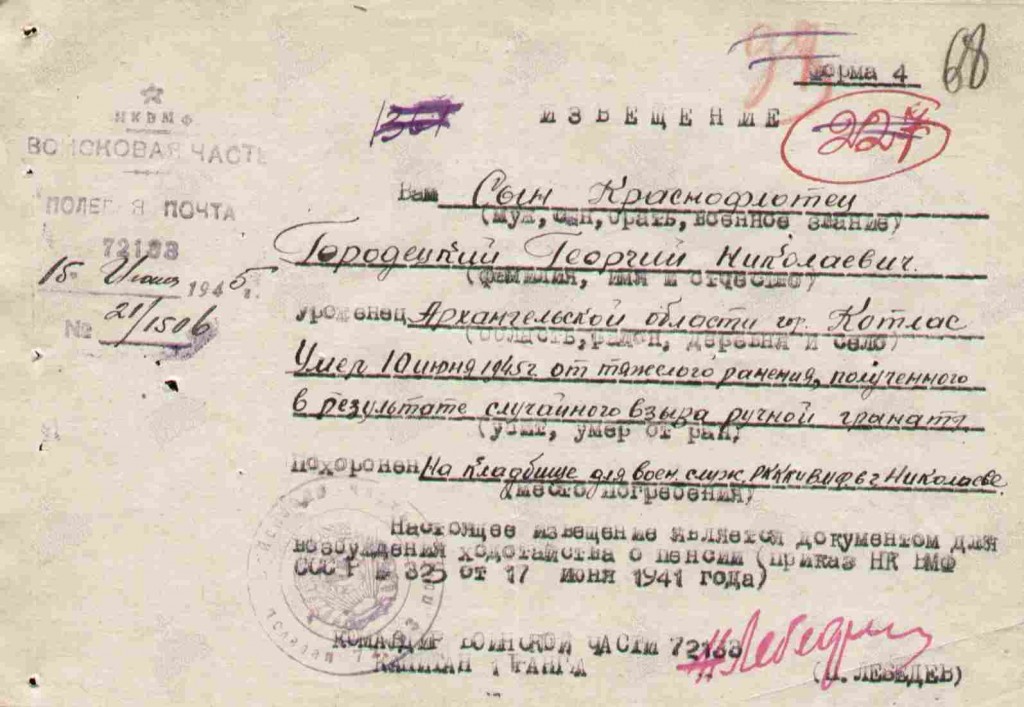 68
Форма 4
ИЗВЕЩЕНИЕ
227
НКВМФ
ВОЙСКОВАЯ ЧАСТЬ
ПОЛЕВАЯ ПОЧТА
72133
15 Июня 1945 г.
№ 21/1506
Вам Сын Краснофлотец
(муж, сын, брать, военное звание)
Городецкий Георгий Николаевич.
(фамилия, имя и отчество)
уроженец Архангельской области гор. Котлас
(область, район, деревня и село)
Умер 10 июня 1945г от тяжелого ранения, полученного
в результате случайного взыва ручной гранаты.
(убит, умер от ран)
Похоронен На кладбище для воен. служ. РККА и ВМФ в г Николаеве
(место погребения)
Настоящее извещение является документом для
возбуждения ходотайства о пенсии (приказ НК ВМФ
СССР № 325 от 17 июня 1941 года)
КОМАНДИР ВОИНСКОЙ ЧАСТИ 72133
КАПИТАН 1 РАНГА
(Н. ЛЕБЕДЕВ)